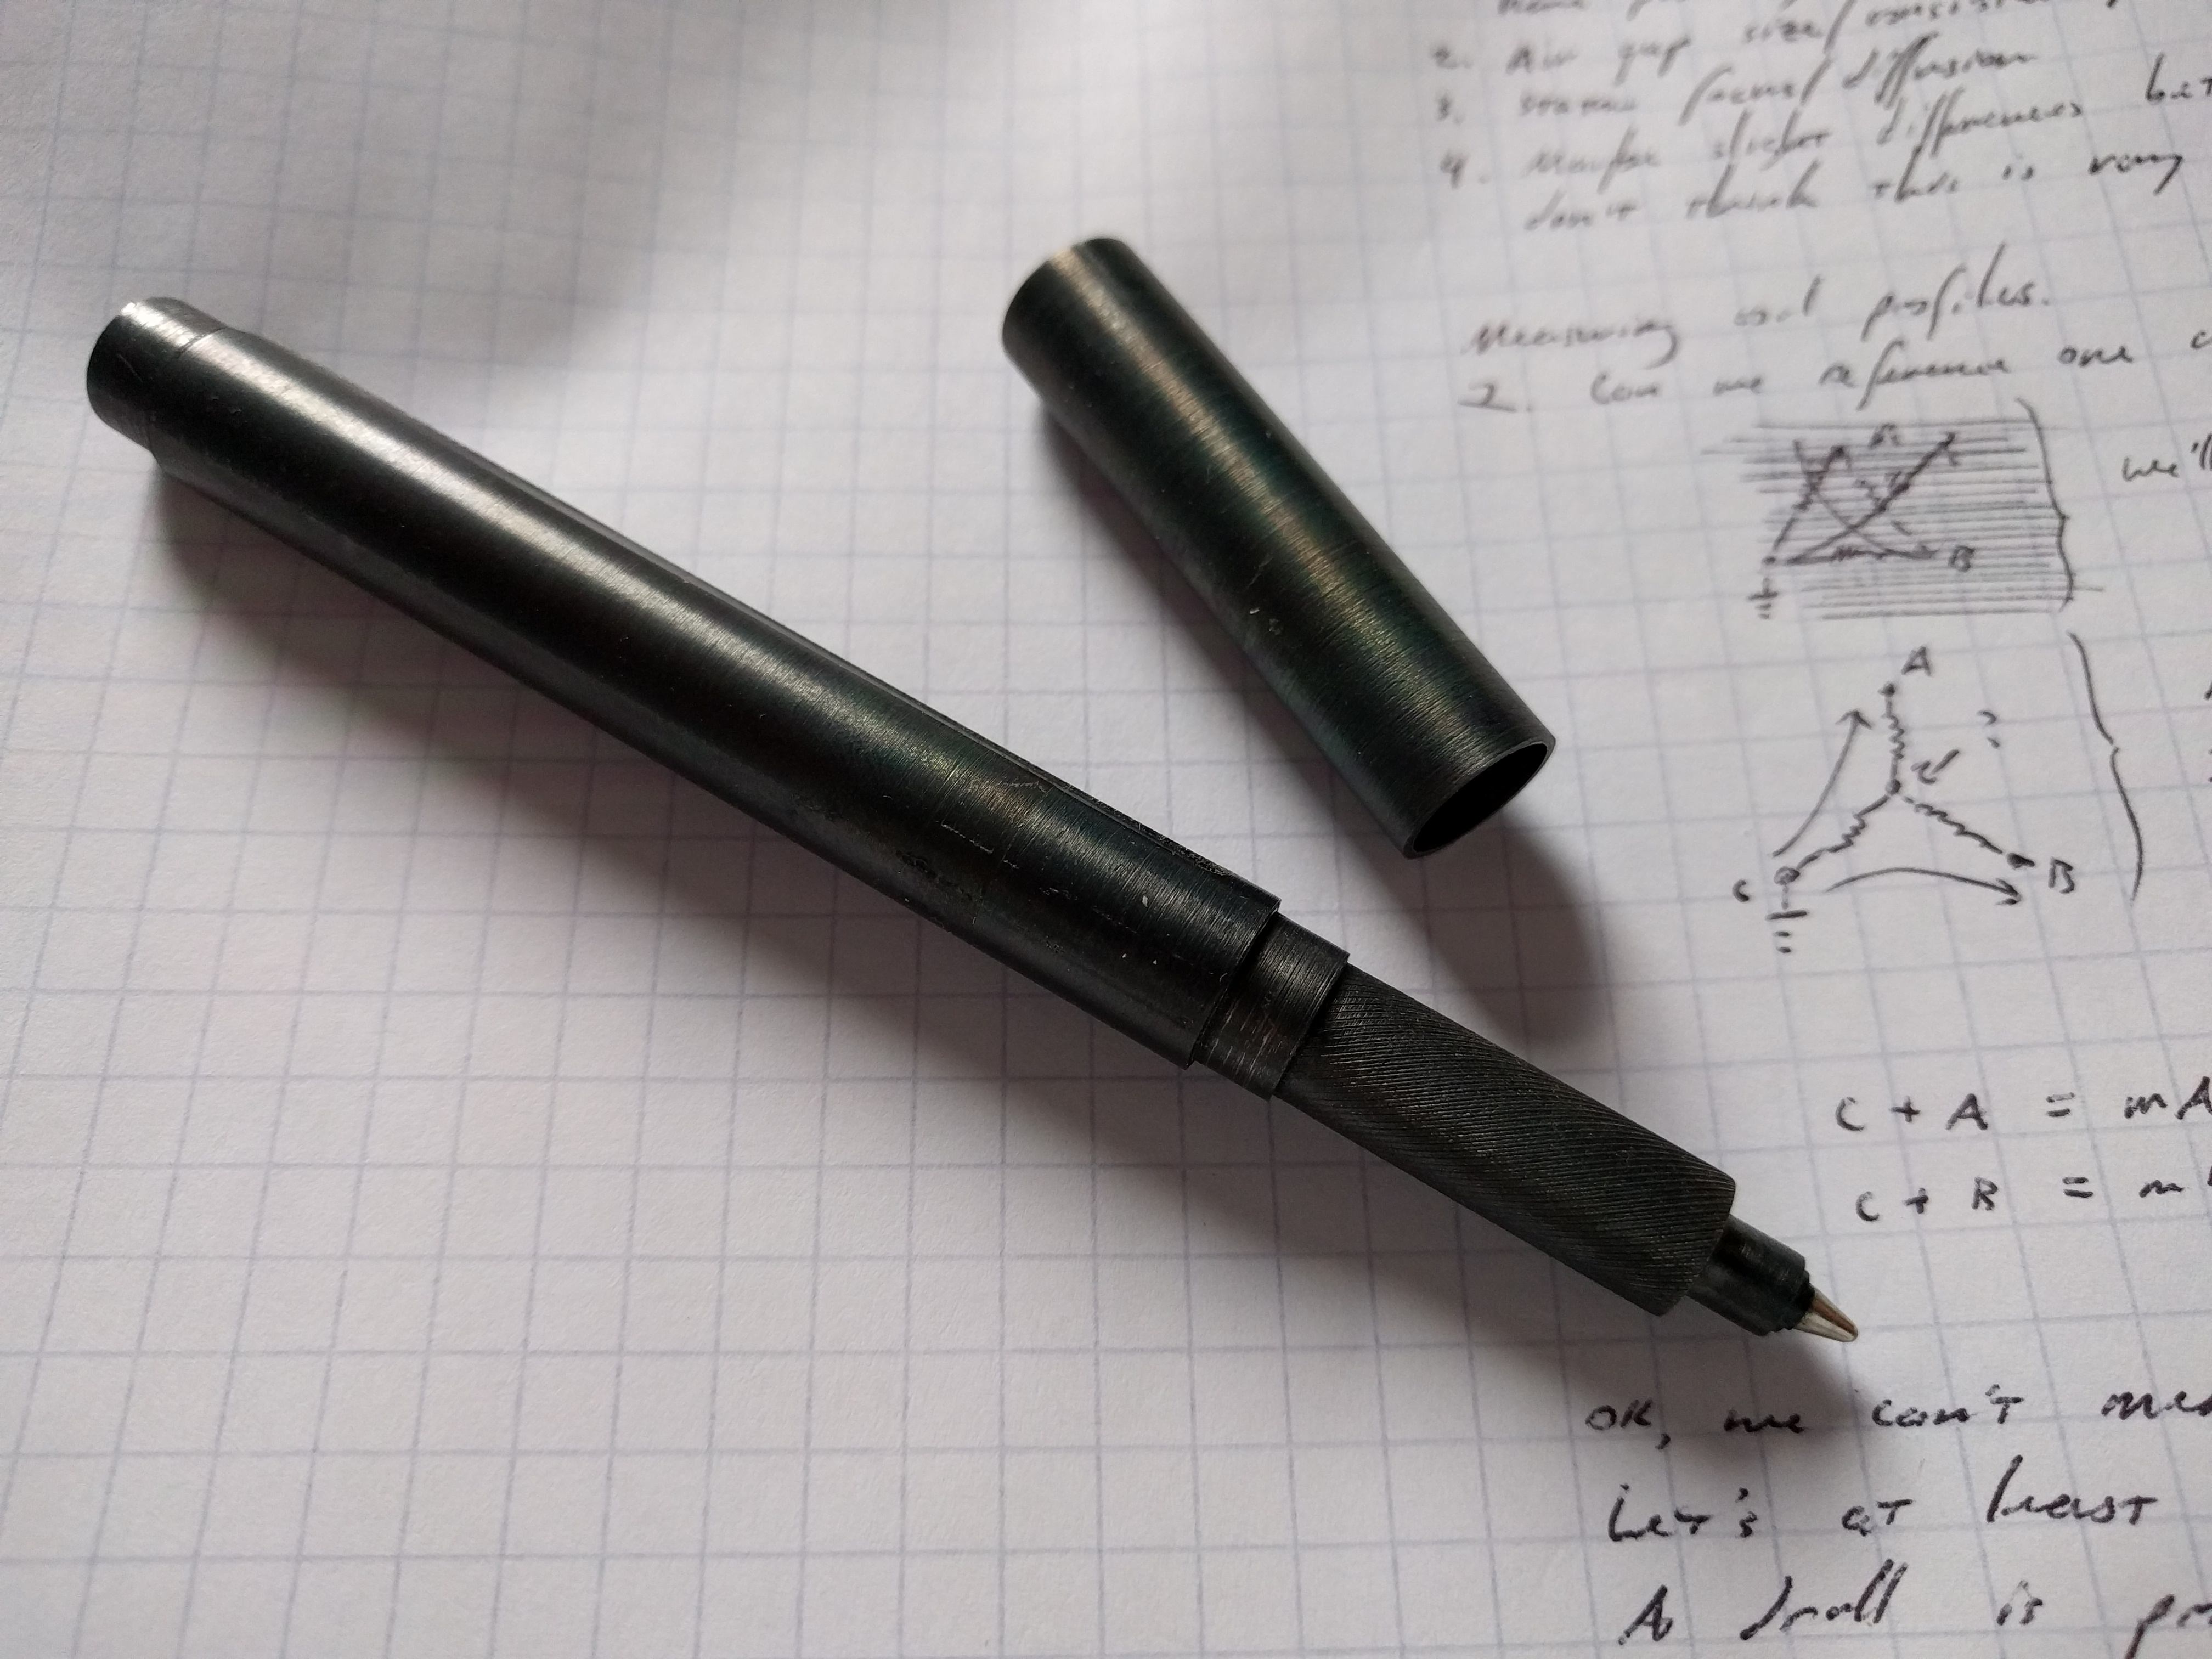 2. Air gap size/consistency
3. Stator focus/diffusion
4. Maybe slight differences bet
don't think this is very
Measuring coil profiles.
2. Can we reference one c
we'll
B
A
?
C
B
C + A = mA
C + B = m
OK, we can't mea
Let's at least
A drall is pr